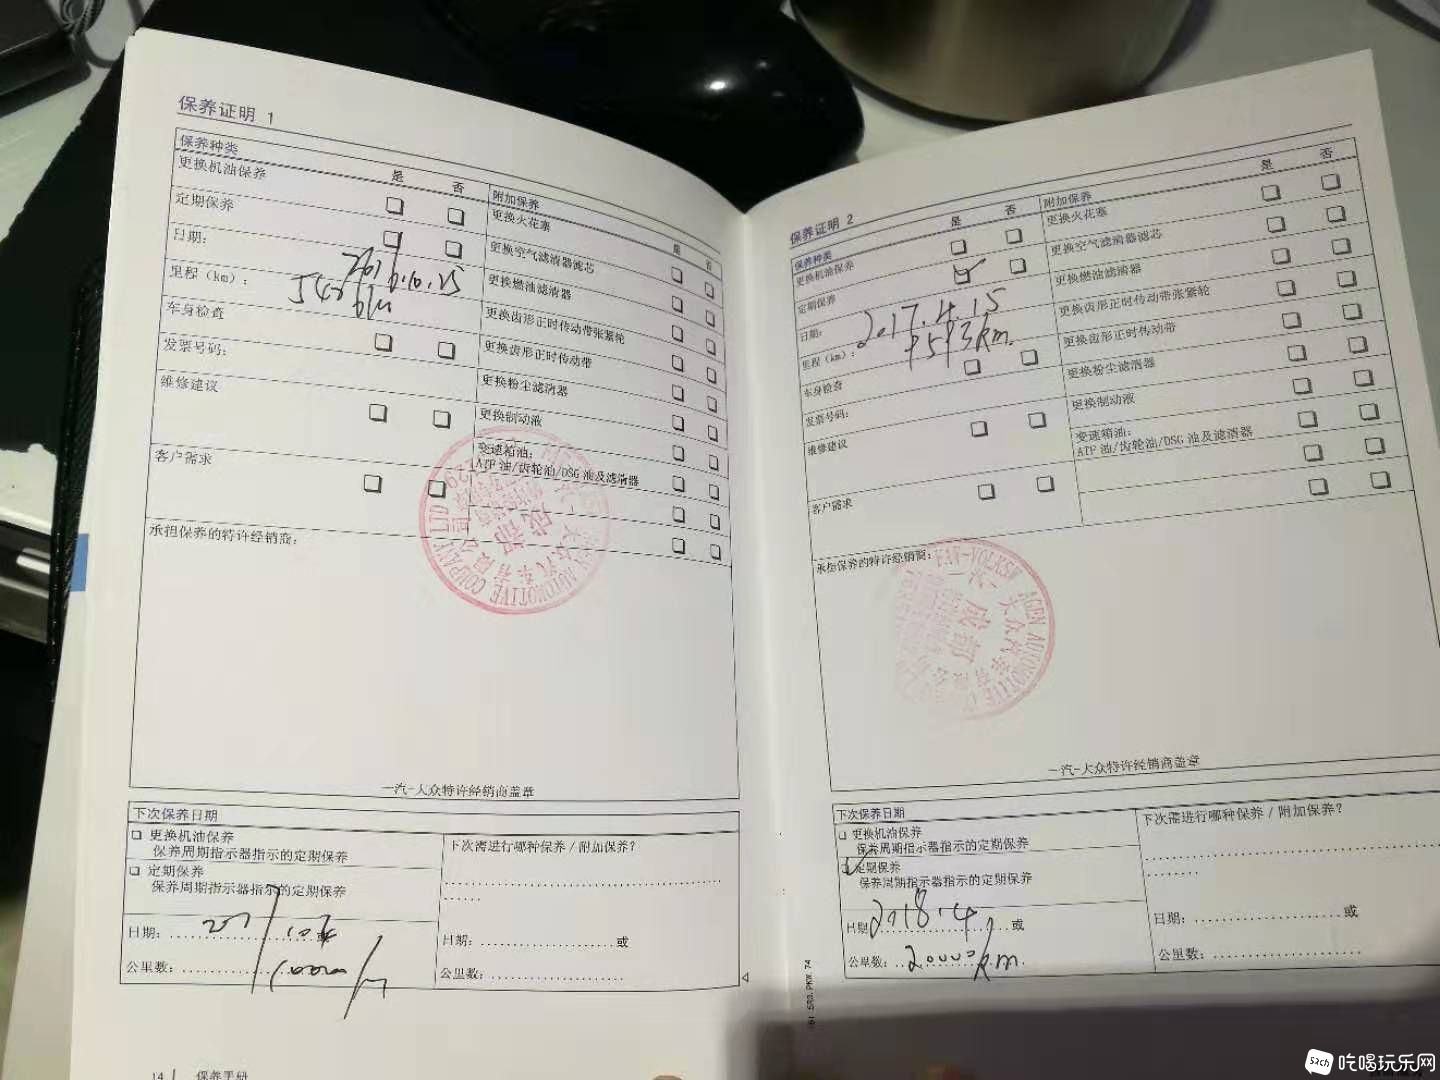 保养证明 1
保养种类
是 否
更换机油保养
定期保养
日期：
2016.10.25
里程（km）：
车身检查
发票号码：
维修建议
客户需求
附加保养
是 否
更换火花塞
更换空气滤清器滤芯
更换燃油滤清器
更换齿形正时传动带张紧轮
更换齿形正时传动带
更换粉尘滤清器
更换制动液
变速箱油：
ATF 油/齿轮油/DSG 油及滤清器
承担保养的特许经销商：
成都
一汽-大众特许经销商盖章
下次保养日期
更换机油保养
保养周期指示器指示的定期保养
定期保养
保养周期指示器指示的定期保养
日期：
或
公里数：
10000km
下次需进行哪种保养／附加保养？
日期：......................或
公里数：......................
14 保养手册
保养证明 2
保养种类
是 否
更换机油保养
定期保养
日期：
2017.4.15
里程（km）：
9593km
车身检查
发票号码：
维修建议
客户需求
附加保养
是 否
更换火花塞
更换空气滤清器滤芯
更换燃油滤清器
更换齿形正时传动带张紧轮
更换齿形正时传动带
更换粉尘滤清器
更换制动液
变速箱油：
ATF 油/齿轮油/DSG 油及滤清器
承担保养的特许经销商：
成都
一汽-大众特许经销商盖章
下次保养日期
更换机油保养
保养周期指示器指示的定期保养
定期保养
保养周期指示器指示的定期保养
日期
2018.4
或
公里数：
20000km
下次需进行哪种保养／附加保养？
日期：......................或
公里数：......................
吃喝玩乐网